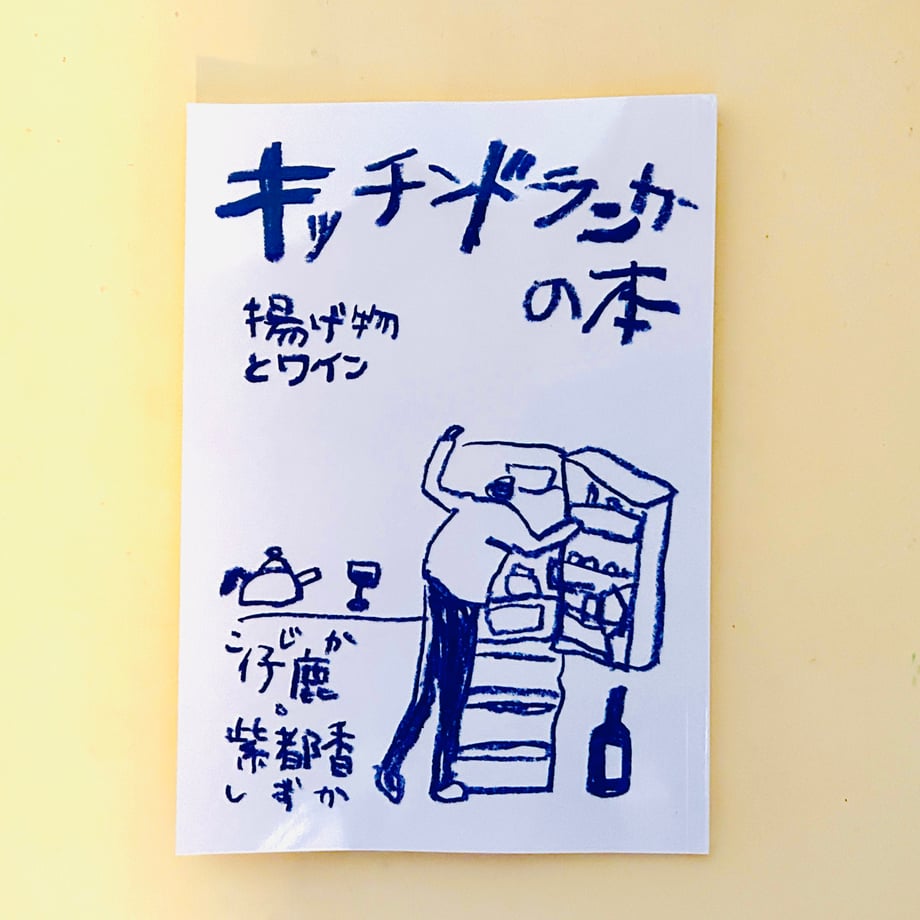 キッチンドランカー
の本
揚げ物
とワイン
こじか
仔鹿。
紫都香
しずか